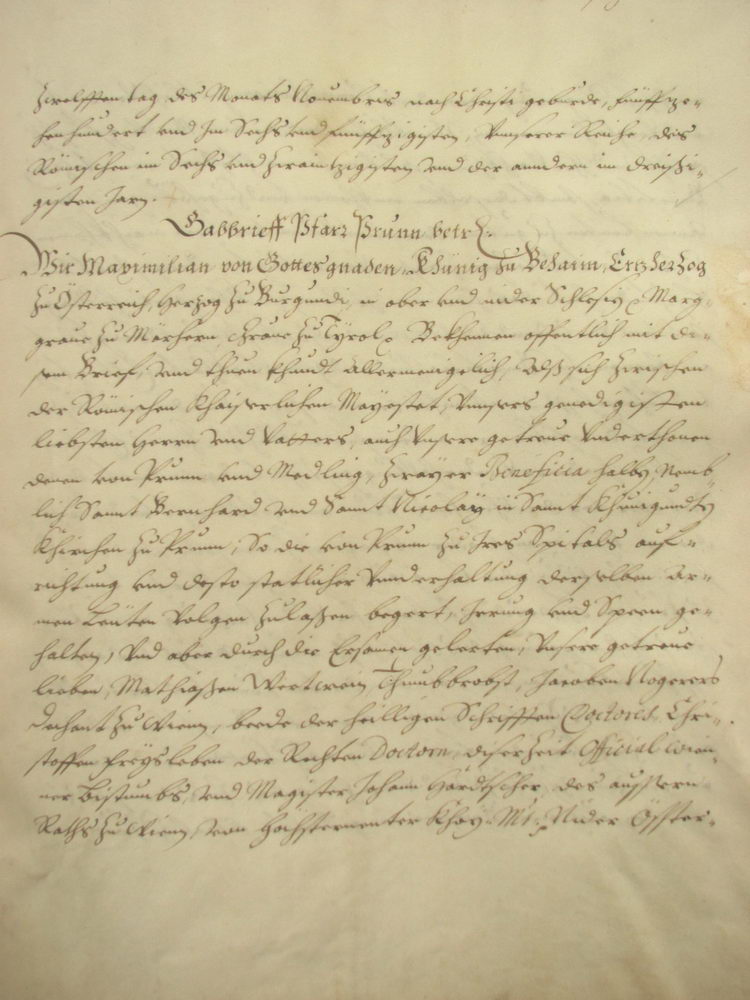 zwelfften tag des Monats Nouembris nach Christi geburde, funffze-
hen hundert vnd Im Sechs vnd funffzigisten, Vnnserer Reiche, des
Römischen im Sechs vnd zwaintzigisten vnd der anndern im dreissi-
gisten Jarn.
Gabbrieff Pfarr Prunn betr:
Wir Maximilian von Gottes gnaden, Khünig zu Behaim, Ertzherzog
zu Österreich, Herzog zu Burgundi, in ober vnd nider Schlesig, Marg-
graue zu Märhern, Graue zu Tyrol, Bekhennen offentlich mit di-
sem Brief, vnd thuen khundt allermenigclich, Alss sich zwischen
der Römischen Khaiserlichen Mayestat, Vnnsers genedigisten
liebsten Herrn vnd Vatters, auch Vnsere getreue Vnderthonen
denen von Prunn vnd Medling, zwayer Beneficia halby, Nemb-
lich Sannt Bernhard vnd Sannt Nicolay in Sannt Khunigundty
Khirchen zu Prunn, So die von Prunn zu Ires Spitals auf-
richtung vnd desto statlicher Vnnderhaltung derselben Ar-
men Leüten Volgen zulassen begert, Irrung vnd Speen ge-
halten, Vnd aber durch die Ersamen gelerten, Vnsere getreue
lieben, Mathiassen Wertwein Thumbbrobst, Jacoben Nogerers
Dechant zu Wienn, beede der heilligen Schrifften Doctores, Chri-
stoffen Freysleben der Rechten Doctorn, diser Zeit Official Wien-
ner Bistumbs, vnd Magister Johann Hardtscher, des aussern
Raths zu Wienn, von Höchsternenter Khay: Mt: Nider Össter-